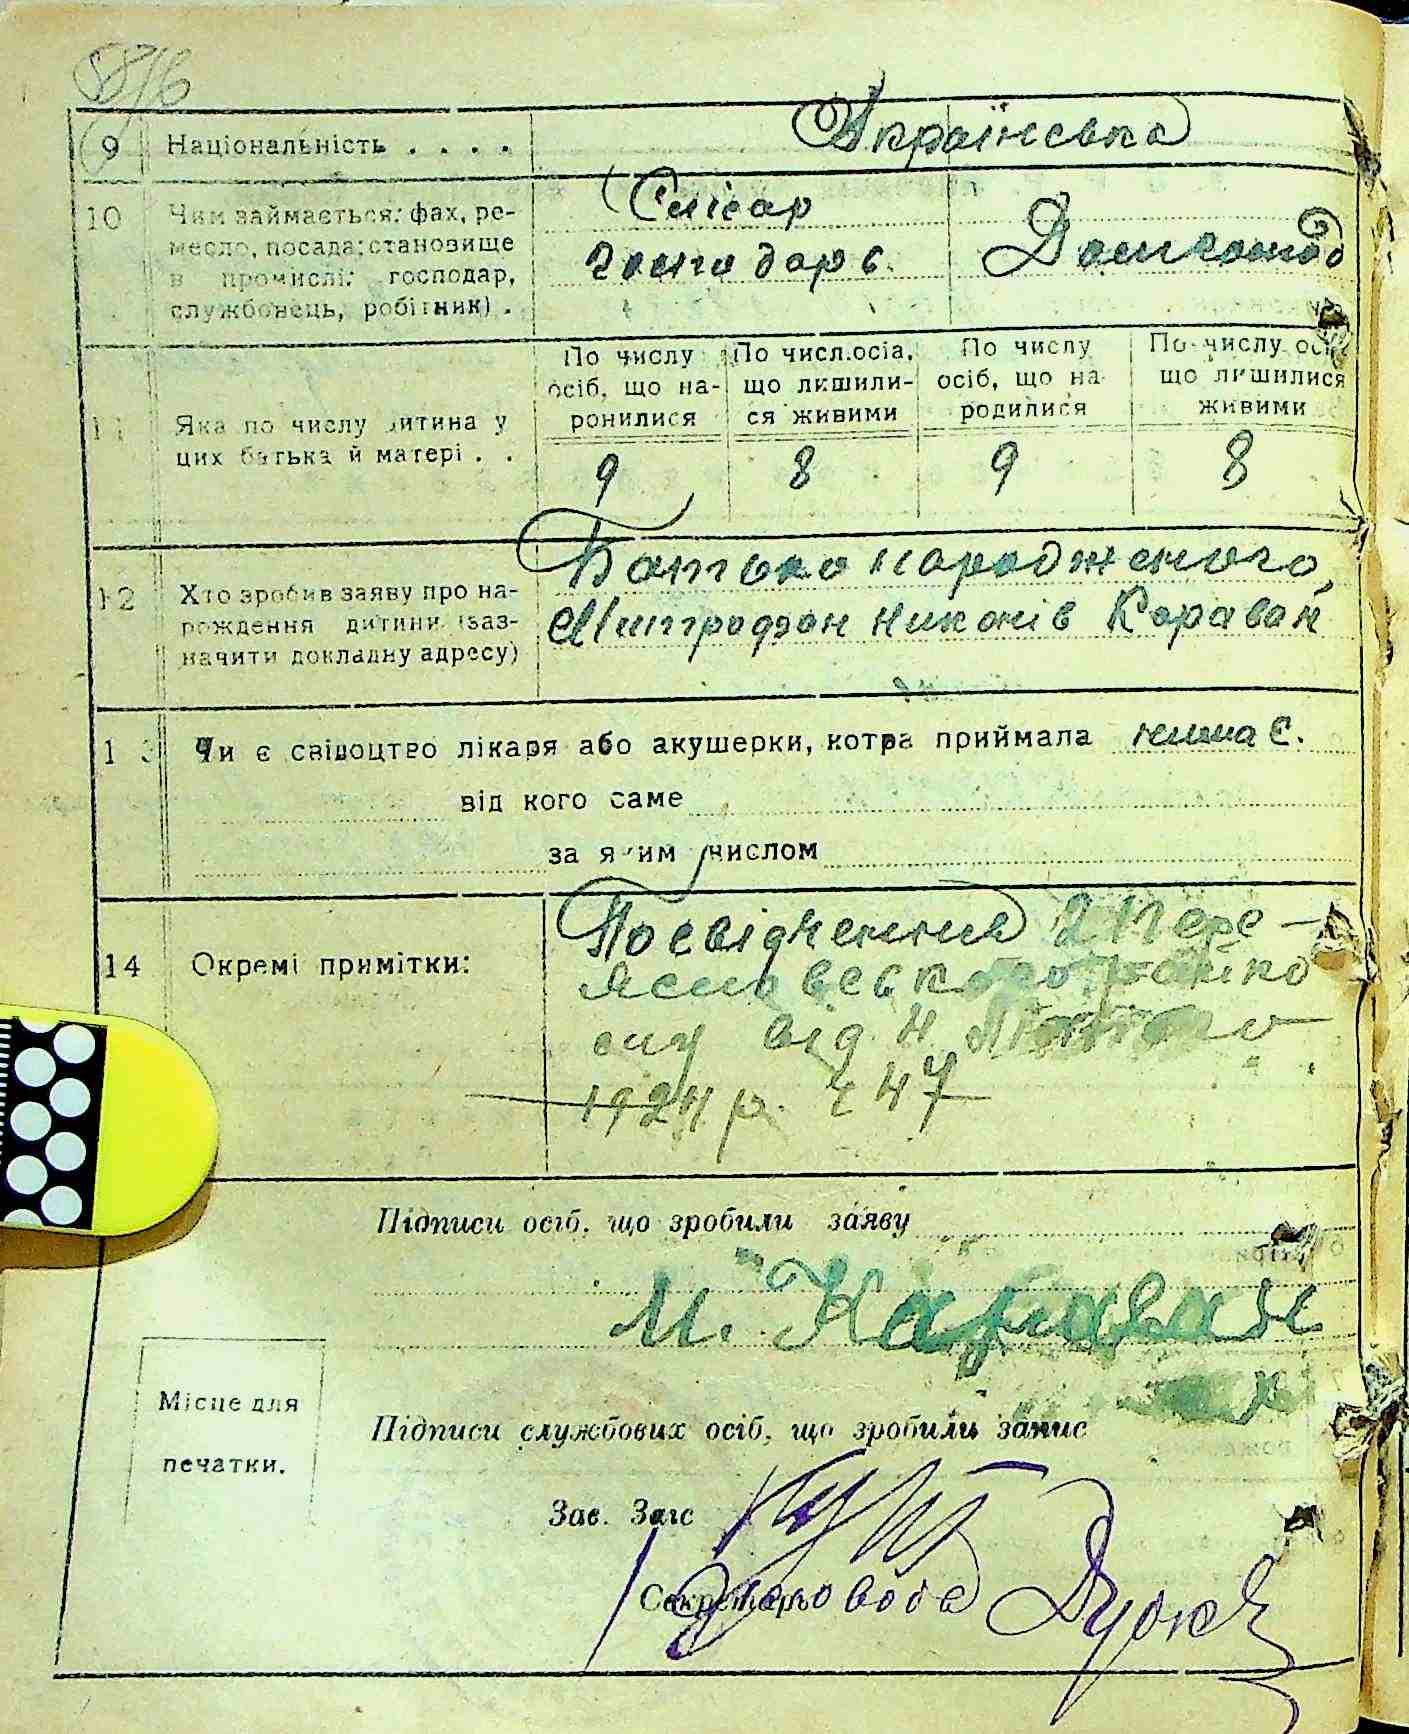 58/6
9 Національність . . . . Українська
10 Чим займається: фах, ре-
месло, посада; становище
в промислі: господар,
службовець, робітник) .
Слісар
господарь
Домгоспод
11 Яка по числу дитина у
цих батька й матері . .
По числу
осіб, що на-
ронилися
По числ.осіа,
що лишили-
ся живими
По числу
осіб, що на-
родилися
По числу осіб
що лишилися
живими
9 8 9 8
12 Хто зробив заяву про на-
рождення дитини (заз-
начити докладну адресу)
Батько народженого,
Митрофан Никонів Каравай
13 Чи є свідоцтво лікаря або акушерки, котра приймала нима є.
від кого саме
за яким числом
14 Окремі примітки:
Посвідчення Пере-
яславського райко
му від 4
1924 р. № 47
Підписи осіб, що зробили заяву
М. Каравай
Місце для
печатки.
Підписи службових осіб, що зробили запис
Зав. Загс
Секретарь
Діловода